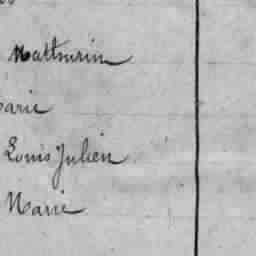 Mathurin
Marie
Louis Julien
Marie